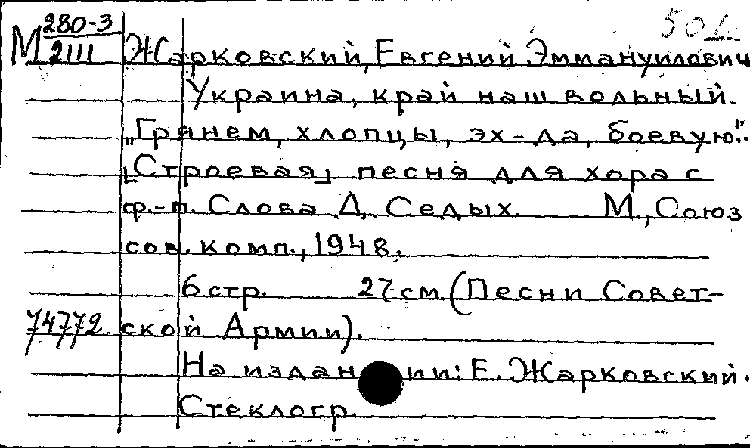 280-3 50
М 2111 Жарковский, Евгений Эммануилович
Украина, край наш вольный.
„Грянем, хлопцы, эх-да, боевую".
[Строевая] песня для хора с
ф.-п. Слова Д. Седых. М., Союз
сов. комп., 1948.
6 стр. 27 см. (Песни Совет-
74772 ской Армии).
На издании: Е. Жарковский.
Стеклогр.